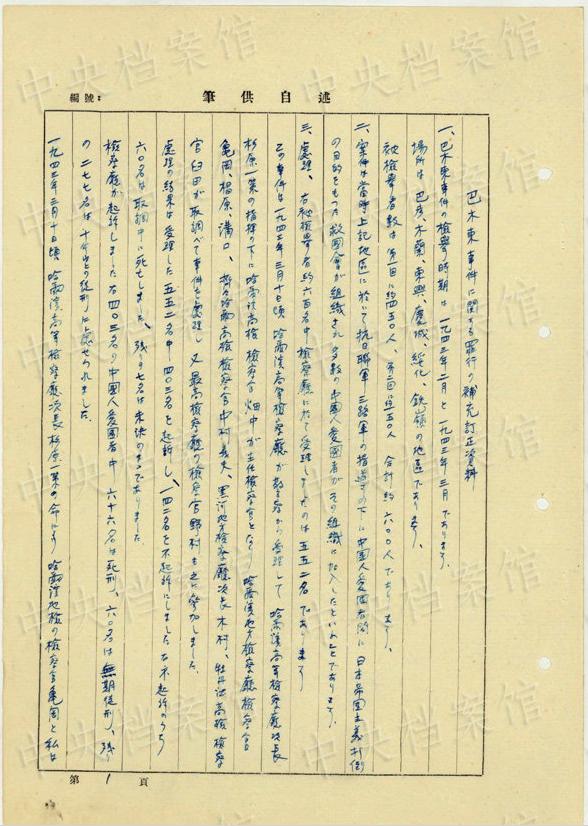 編號:
筆供自述
巴木東事件に関する罪行の補充訂正資料
一、巴木東事件の検挙時期は一九四三年二月と一九四三年三月であります。
場所は巴彦、木蘭、東興、慶城、綏化、鉄嶺の地区であります。
被検挙者数は 約四五〇人、 約一五〇人 合計約六〇〇人であります。
二、案件は当時上記地区に於て抗日聯軍三路軍の指導の下に中国人愛国者間に日本帝国主義打倒
の目的をもつた救国会が組織され多数の中国人愛国者がその組織に加入したといふことであります。
三、処理、右被検挙者約六百名中検察庁に於て受理しましたのは五五二名であります
この事件は一九四三年三月十日頃哈爾濱高等検察庁が警察から受理して哈爾濱高等検察庁次長
杉原一策の指揮の下に哈爾濱高検検察官畑中が主任検察官となり哈爾濱地方検察庁検察官
亀岡、楊原、溝口、斉々哈爾高検検察官中村 夫、黒河地方検察庁次長木村、牡丹江高検検察
官臼田が取調べて事件を処理し又最高検察庁の検察官野村も之に参加しました。
処理の結果は受理した五五二名中四〇三名を起訴し一四二名を不起訴にしました右不起訴のうち
六〇名は取調中に死亡しました、残りの 名は未決のまゝでありました
検察庁が起訴しました右四〇三名の中国人愛国者中 六十六名は死刑、六〇名は無期徒刑、残り
の二七七名は十年以上の徒刑に処せられました。
一九四三年三月十日頃哈爾濱高等検察庁次長杉原一策の命により哈爾濱地検の検察官亀岡と私は
第 1 頁
中央档案馆